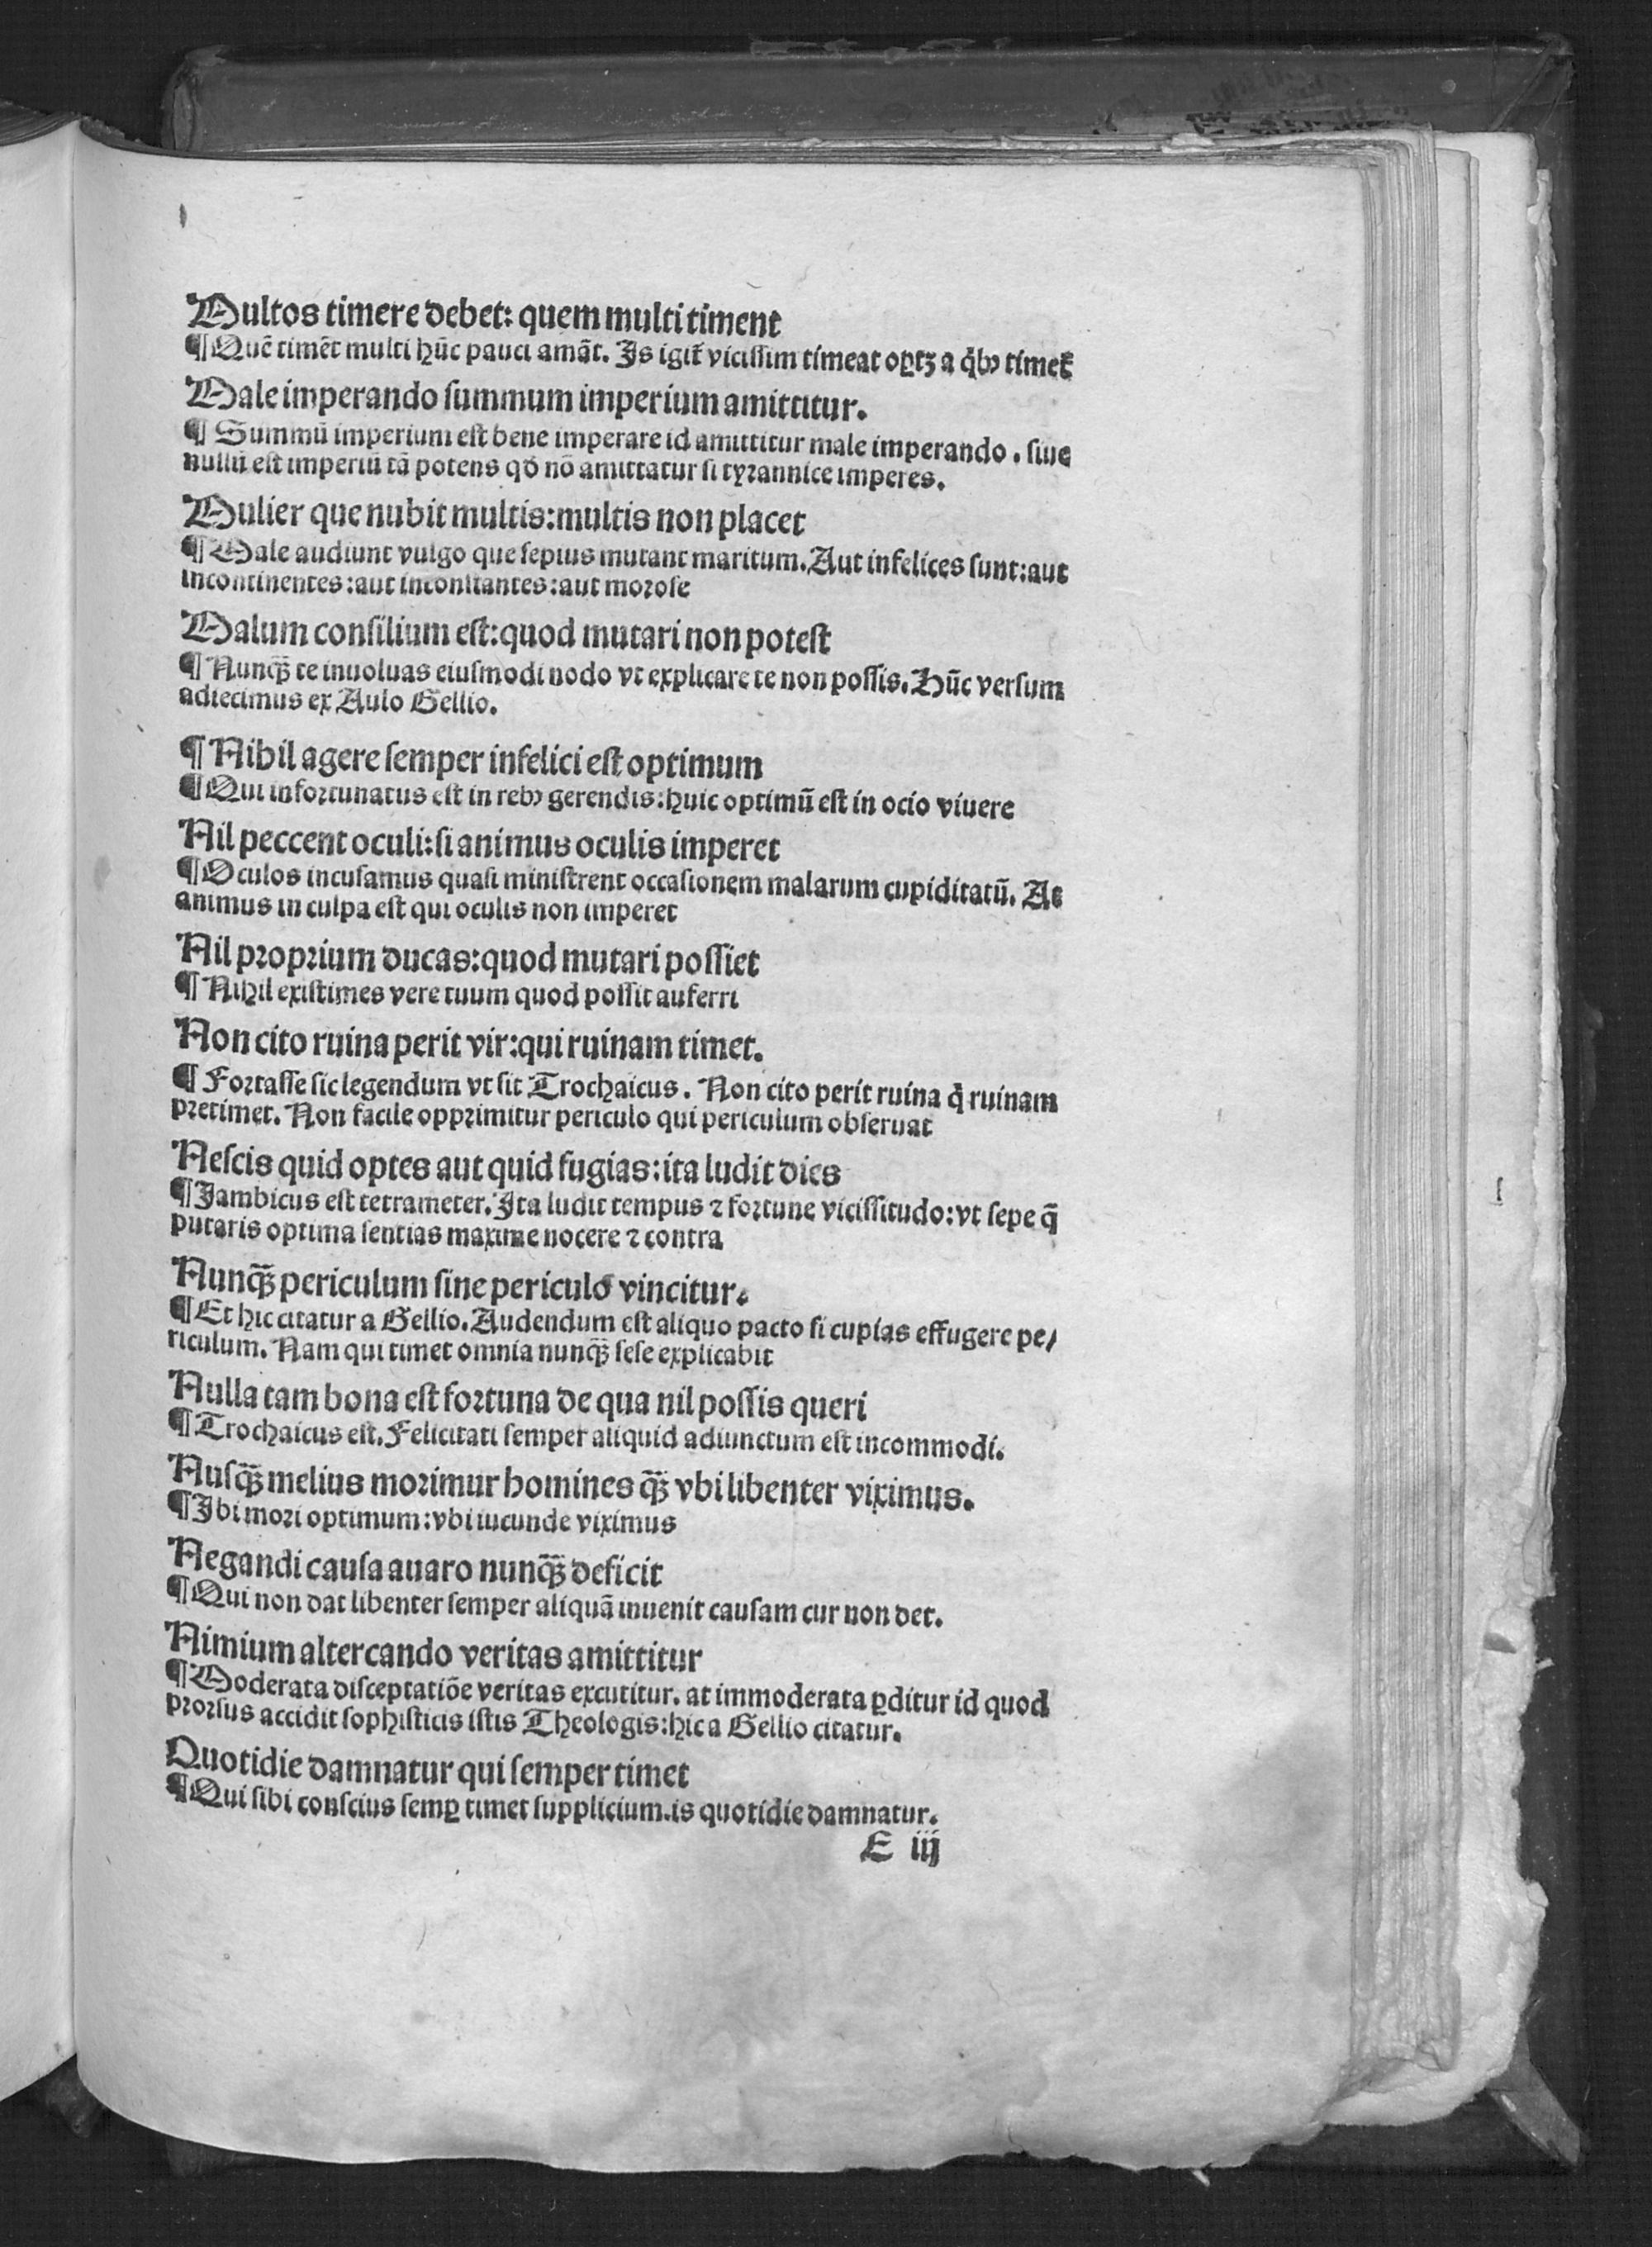 Multos timere debet: quem multi timent
¶ Quē timēt multi hūc pauci amāt. Is igit᷑ vicissim timeat oꝑtꝫ a q̇bꝰ timet᷑
Male imperando summum imperium amittitur.
¶ Summū imperium est bene imperare id amittitur male imperando. siue
nullū est imperiū tā potens qđ nō amittatur si tyrannice imperes.
Mulier que nubit multis:multis non placet
¶ Male audiunt vulgo que sepius mutant maritum. Aut infelices sunt:aut
incontinentes:aut inconstantes:aut morose
Malum consilium est:quod mutari non potest
¶ Nunqꝫ̄ te inuoluas eiusmodi nodo vt explicare te non possis. Hūc versum
adiecimus ex Aulo Gellio.
¶ Nihil agere semper infelici est optimum
¶ Qui infortunatus est in rebꝰ gerendis:huic optimū est in ocio viuere
Nil peccent oculi:si animus oculis imperet
¶ Oculos incusamus quasi ministrent occasionem malarum cupiditatū. At
animus in culpa est qui oculis non imperet
Nil proprium ducas:quod mutari possiet
¶ Nihil existimes vere tuum quod possit auferri
Non cito ruina perit vir:qui ruinam timet.
¶ Fortasse sic legendum vt sit Trochaicus. Non cito perit ruina q̇ ruinam
pretimet. Non facile opprimitur periculo qui periculum obseruat
Nescis quid optes aut quid fugias:ita ludit dies
¶ Iambicus est tetrameter. Ita ludit tempus ⁊ fortune vicissitudo:vt sepe q̄
putaris optima sentias maxime nocere ⁊ contra
Nunqꝫ̄ periculum sine periculo vincitur.
¶ Et hic citatur a Gellio. Audendum est aliquo pacto si cupias effugere pe/
riculum. Nam qui timet omnia nunqꝫ̄ sese explicabit
Nulla tam bona est fortuna de qua nil possis queri
¶ Trochaicus est. Felicitati semper aliquid adiunctum est incommodi.
Nusqꝫ̄ melius morimur homines qꝫ̄ vbi libenter viximus.
¶ Ibi mori optimum:vbi iucunde viximus
Negandi causa auaro nunqꝫ̄ deficit
¶ Qui non dat libenter semper aliquā inuenit causam cur non det.
Nimium altercando veritas amittitur
¶ Moderata disceptatiōe veritas excutitur. at immoderata ꝑditur id quod
prorsus accidit sophisticis istis Theologis:hic a Gellio citatur.
Quotidie damnatur qui semper timet
¶ Qui sibi conscius semꝑ timet supplicium.is quotidie damnatur.
E iij